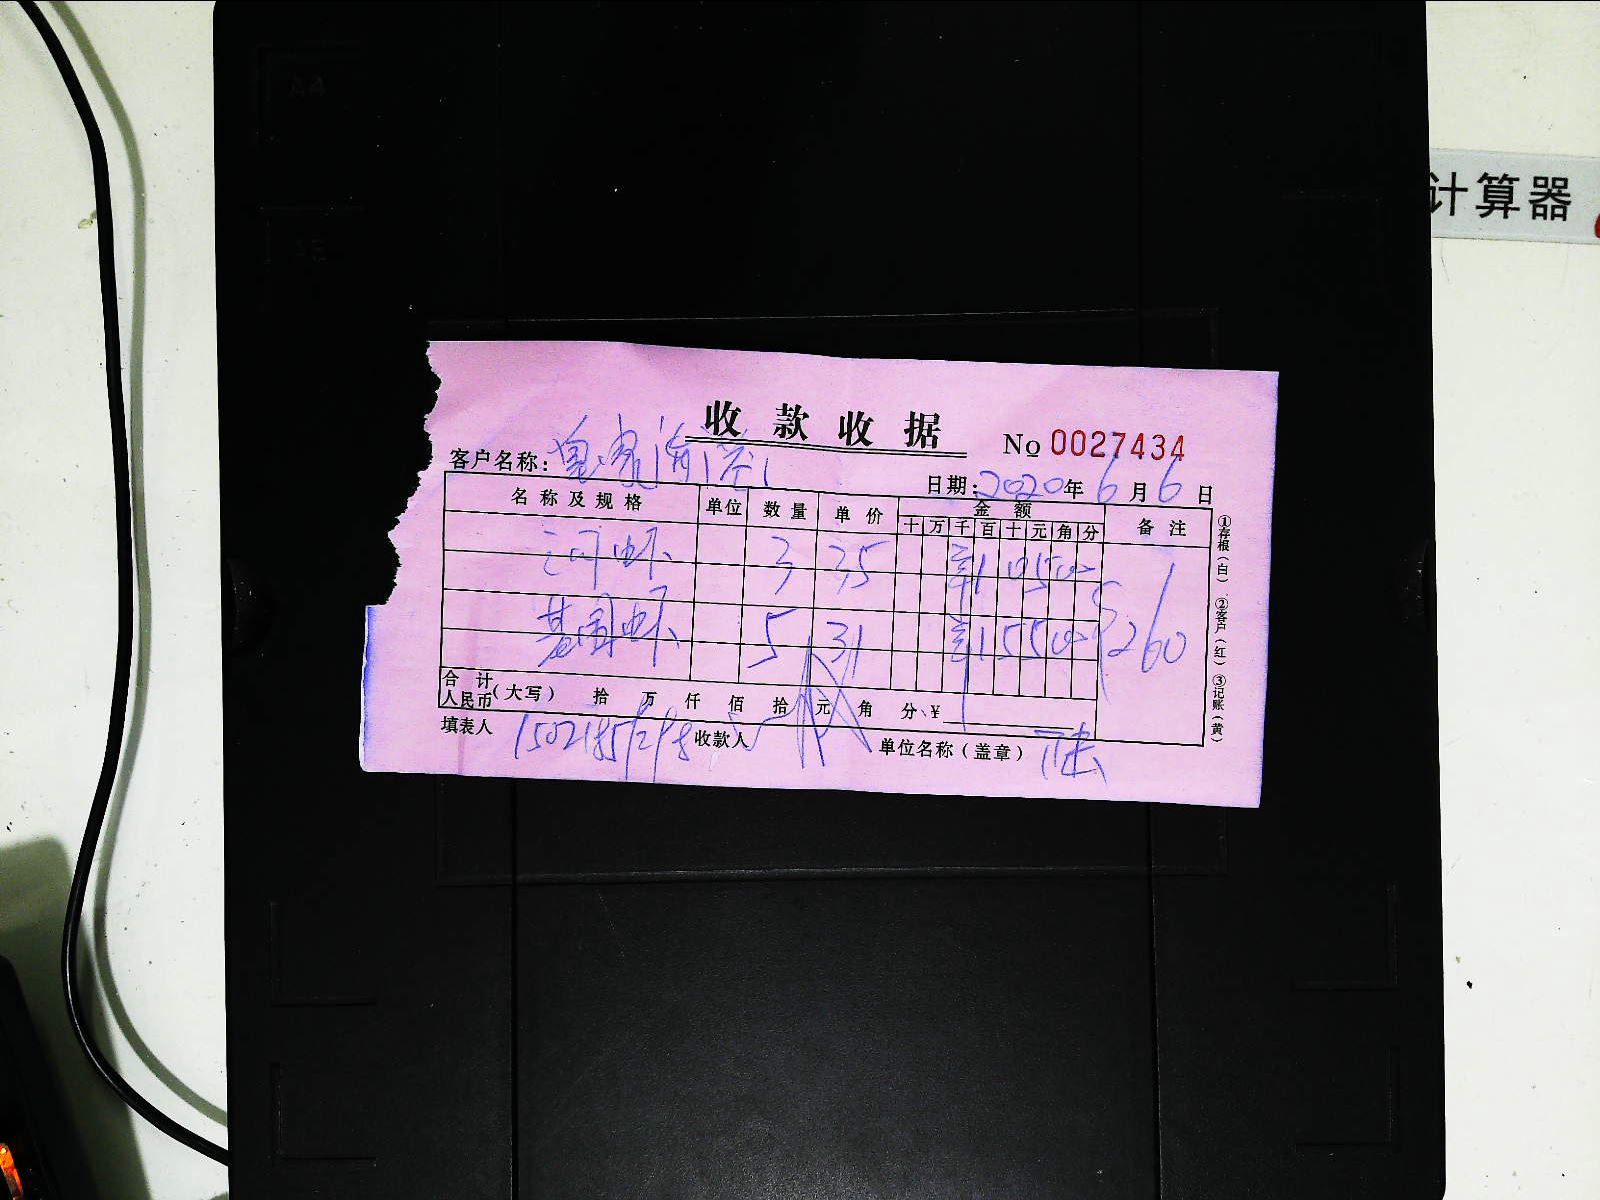 计算器
收款收据
No 0027434
客户名称：
日期：2020年6月6日
名称及规格 单位 数量 单价 金额 备注
十 万 千 百 十 元 角 分
河虾 3 35 105 00
基围虾 5 31 155 00 260
合计
人民币（大写） 拾 万 仟 佰 拾 元 角 分 ¥
填表人 收款人 单位名称（盖章）
①存根（白） ②客户（红） ③记账（黄）